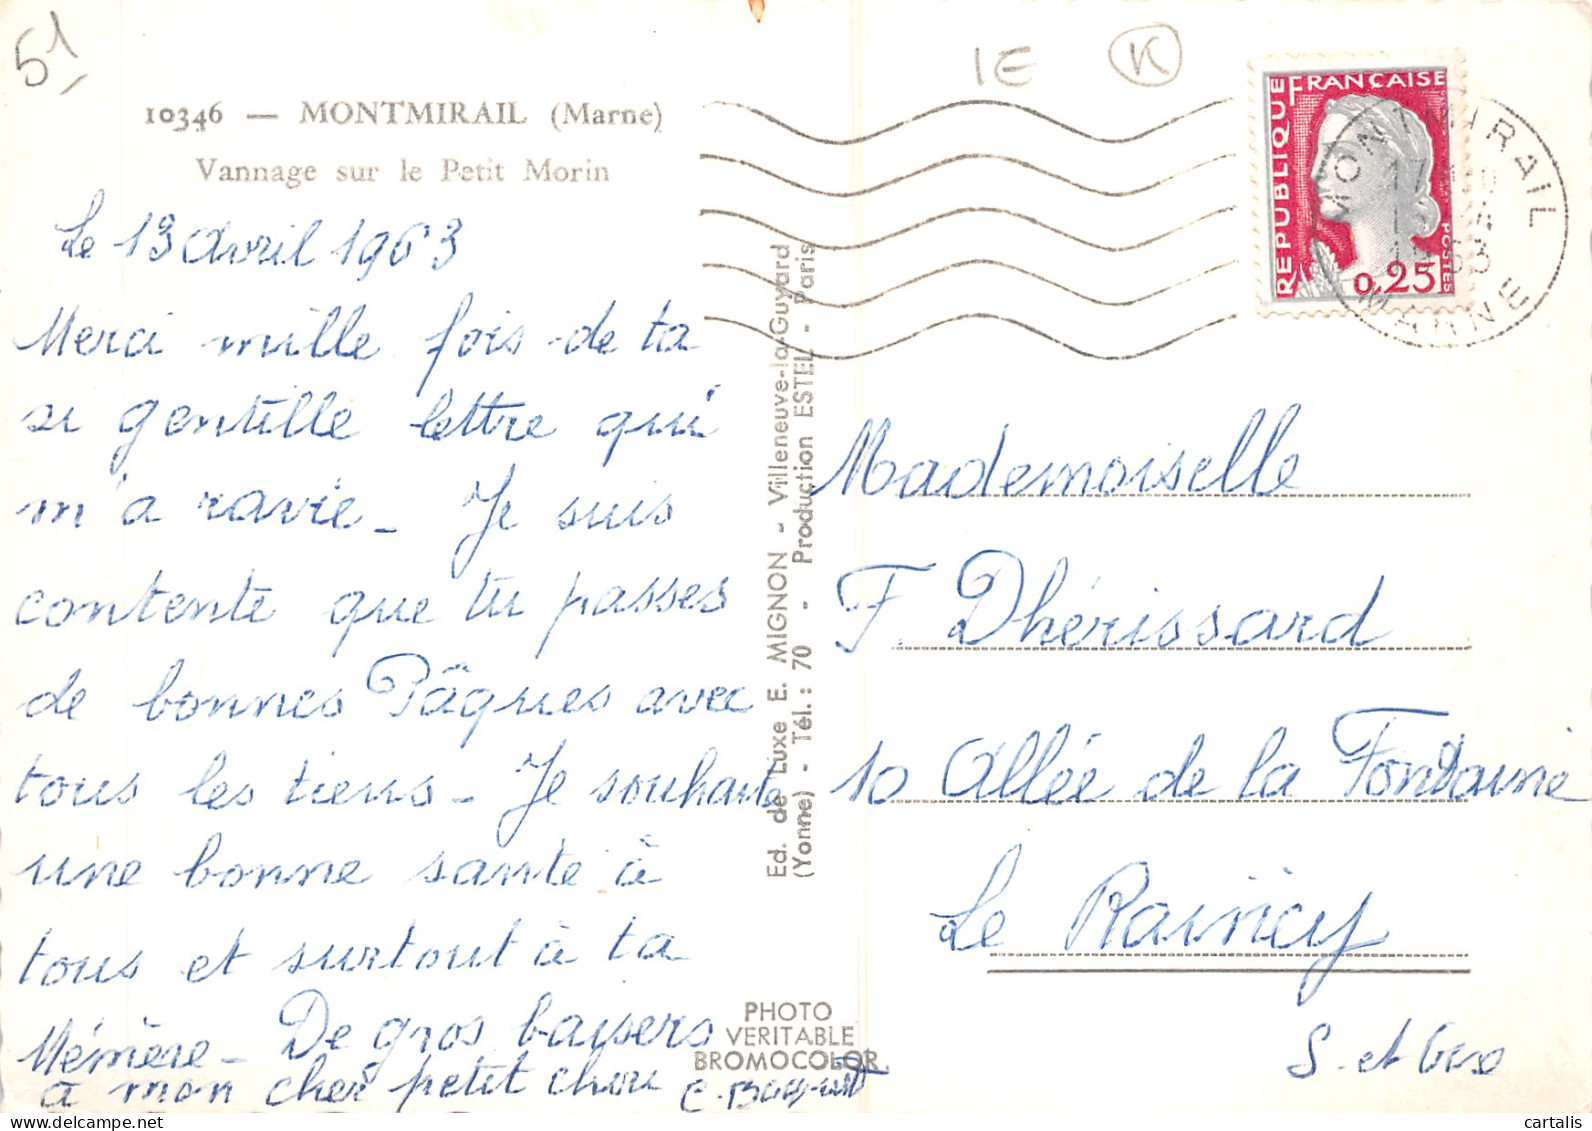 51
IE K
10346 — MONTMIRAIL (Marne)
Vannage sur le Petit Morin
Le 13 avril 1963
Merci mille fois de ta
si gentille lettre qui
m'a ravie_ Je suis
contente que tu passes
de bonnes Pâques avec
tous les tiens_ Je souhaite
une bonne santé à
tous et surtout à ta
Mémère_ De gros baisers
à mon cher petit chou
Ed. de Luxe E. MIGNON - Villeneuve-la-Guyard
(Yonne) - Tél. : 70 - Production ESTEL - Paris
PHOTO
VERITABLE
BROMOCOLOR
REPUBLIQUE FRANÇAISE
POSTES
0,25
MONTMIRAIL
MARNE
Mademoiselle
F Dhérissard
10 Allée de la Fontaine
Le Raincy
S. et Oise
cartalis